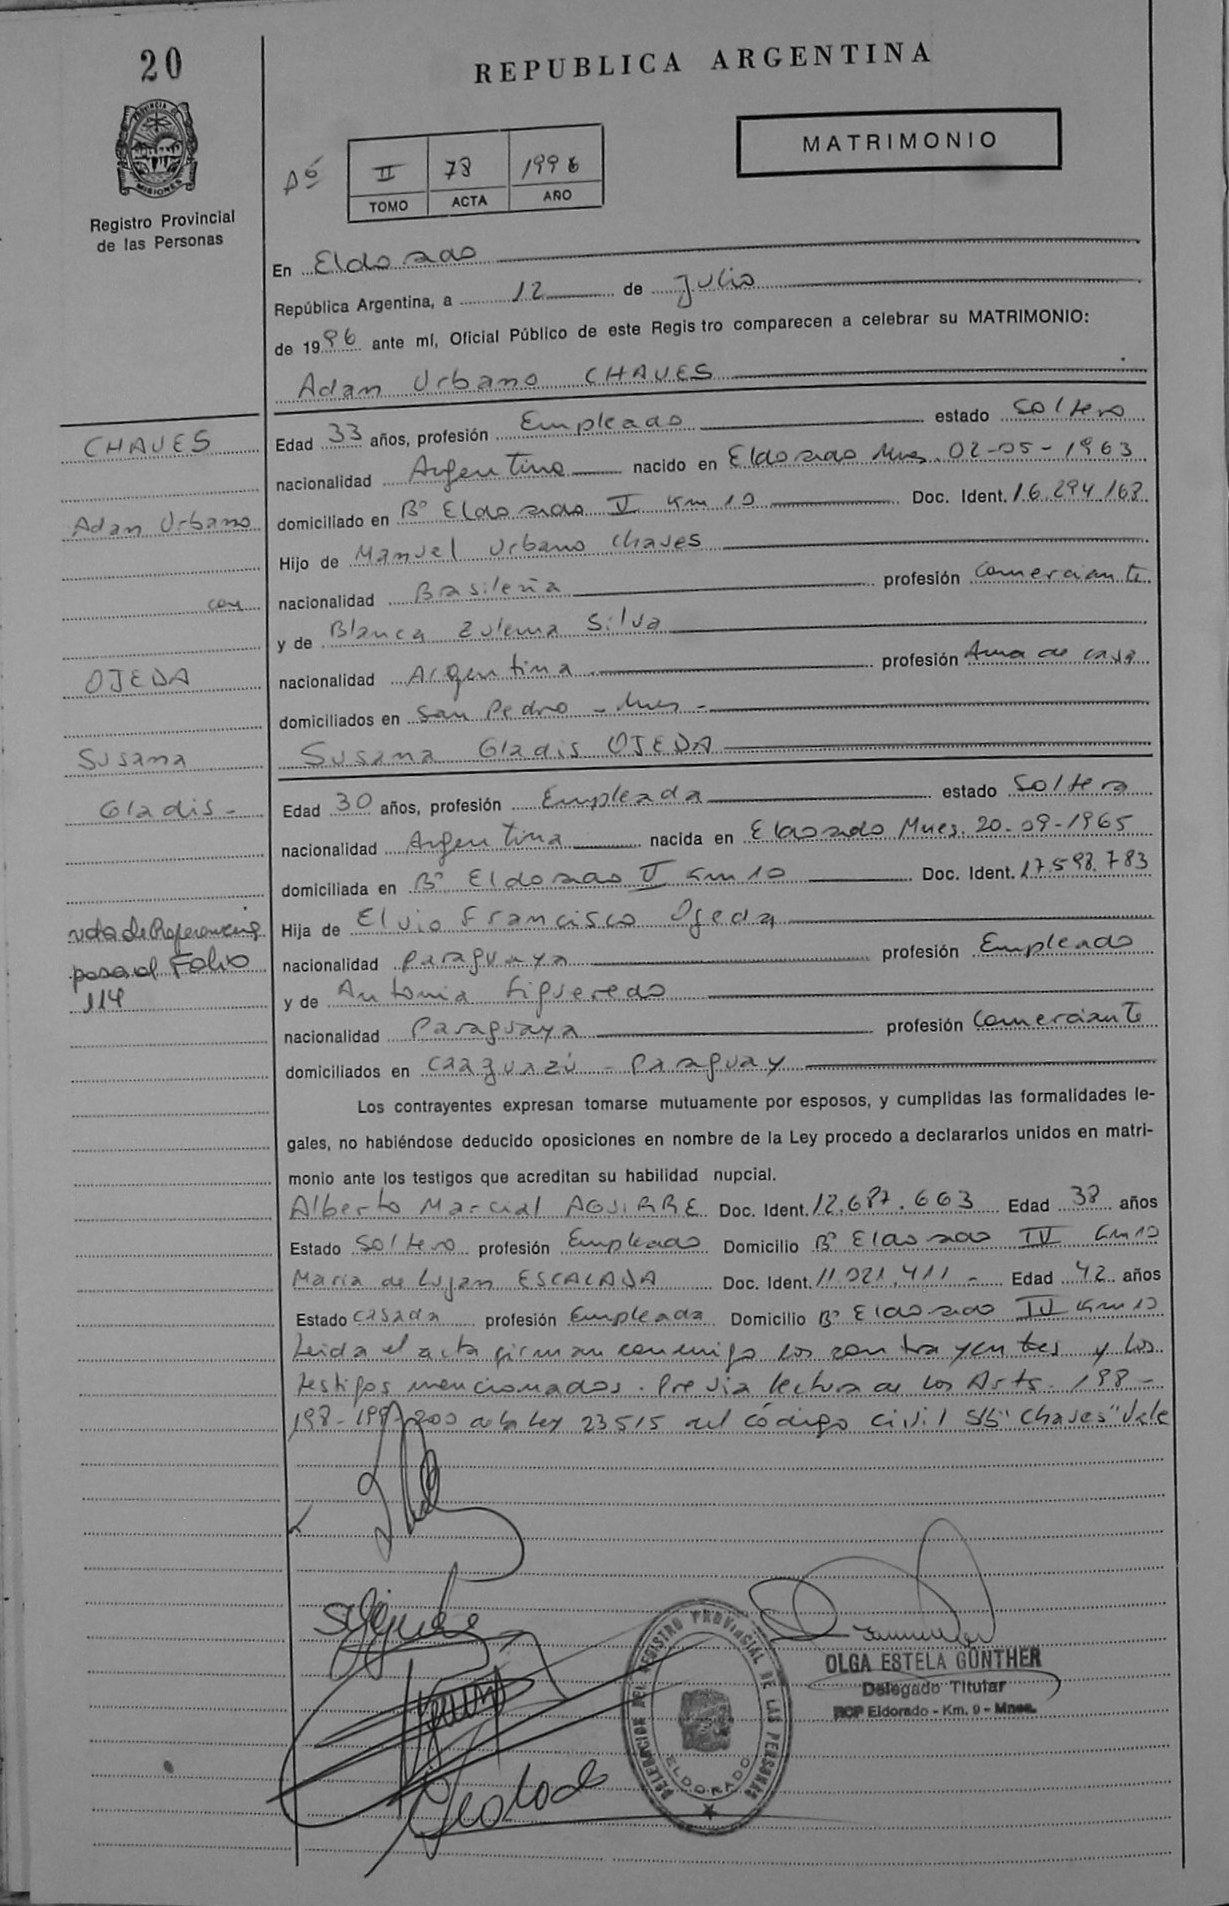 20
REPUBLICA ARGENTINA
MATRIMONIO
PROVINCIA DE
MISIONES
Registro Provincial
de las Personas
Aº II 78 1996
TOMO ACTA AÑO
En Eldorado
República Argentina, a 12 de Julio
de 1996 ante mí, Oficial Público de este Registro comparecen a celebrar su MATRIMONIO:
Adan Urbano CHAVES
CHAVES
Adan Urbano
con
OJEDA
Susana
Gladis -
nota de Referencia
pasa al Folio
114
Edad 33 años, profesión Empleado estado Soltero
nacionalidad Argentina nacido en Eldorado Mnes. 02-05-1963
domiciliado en Bº Eldorado V Km 10 Doc. Ident. 16.294.168
Hijo de Manuel Urbano Chaves
nacionalidad Brasileña profesión Comerciante
y de Blanca Zulema Silva
nacionalidad Argentina profesión Ama de casa
domiciliados en San Pedro - Mnes -
Susana Gladis OJEDA
Edad 30 años, profesión Empleada estado Soltera
nacionalidad Argentina nacida en Eldorado Mnes. 20-09-1965
domiciliada en Bº Eldorado V Km 10 Doc. Ident. 17.598.783
Hija de Elvio Francisco Ojeda
nacionalidad Paraguaya profesión Empleado
y de Antonia Figueredo
nacionalidad Paraguaya profesión Comerciante
domiciliados en Caaguazú - Paraguay
Los contrayentes expresan tomarse mutuamente por esposos, y cumplidas las formalidades le-
gales, no habiéndose deducido oposiciones en nombre de la Ley procedo a declararlos unidos en matri-
monio ante los testigos que acreditan su habilidad nupcial.
Alberto Marcial AGUIRRE Doc. Ident. 12.687.663 Edad 38 años
Estado Soltero profesión Empleado Domicilio Bº Eldorado IV Km 10
Maria de Lujan ESCALADA Doc. Ident. 11.021.411 - Edad 42 años
Estado casada profesión Empleada Domicilio Bº Eldorado IV Km 10
Leida el acta firman conmigo los contrayentes y los
testigos mencionados. Previa lectura de los Arts. 188 -
198-199-200 de la Ley 23515 del código civil S/b "Chaves" Vale
DELEGACION DEL REGISTRO PROVINCIAL DE LAS PERSONAS
ELDORADO
OLGA ESTELA GÜNTHER
Delegado Titular
RCP Eldorado - Km. 9 - Mnes.